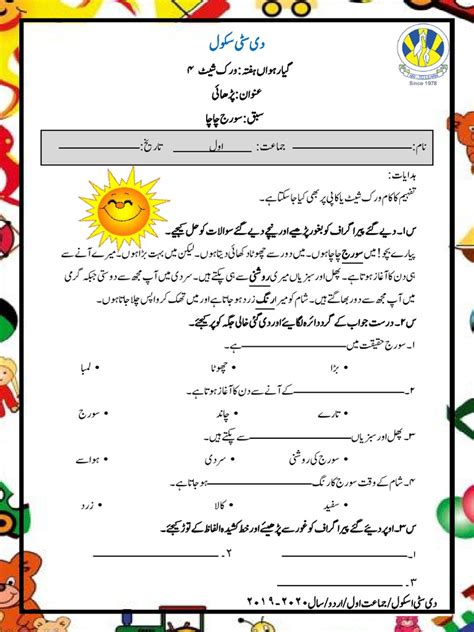 دی سٹی سکول
گیارہواں ہفتہ: ورک شیٹ ۴
عنوان: پڑھائی
سبق: سورج چاچا
Since 1978
نام:ــــــــــــــــ جماعت: ــــ اول ــــ تاریخ:ــــــــــــــــ
ہدایات:
تفہیم کا کام ورک شیٹ یا کاپی پر بھی کیا جا سکتا ہے۔
س۱۔ دیے گئے پیراگراف کو بغور پڑھیے اور نیچے دیے گئے سوالات کو حل کیجیے۔
پیارے بچو! میں سورج چاچا ہوں۔ میں دور سے چھوٹا دکھائی دیتا ہوں۔ لیکن میں بہت بڑا ہوں۔ میرے آنے سے
ہی دن کا آغاز ہوتا ہے۔ پھل اور سبزیاں میری روشنی سے ہی پکتے ہیں۔ سردی میں آپ مجھ سے دوستی جبکہ گرمی
میں آپ مجھ سے دور بھاگتے ہیں۔ شام کو میرا رنگ زرد ہو جاتا ہے اور میں تھک کر واپس چلا جاتا ہوں۔
س۲۔ درست جواب کے گرد دائرہ لگائیے اور دی گئی خالی جگہ کو پر کیجئے۔
۱۔ سورج حقیقت میں ــــــــــــــــ ہے۔
• بڑا • چھوٹا • لمبا
۲۔ ــــــــــــــــ کے آنے سے دن کا آغاز ہوتا ہے۔
• تارے • چاند • سورج
۳۔ پھل اور سبزیاں ــــــــــــــــ سے پکتے ہیں۔
• سورج کی روشنی • سردی • ہوا سے
۴۔ شام کے وقت سورج کا رنگ ــــــــــــــــ ہو جاتا ہے۔
• سفید • کالا • زرد
س۳۔ اوپر دیے گئے پیراگراف کو غور سے پڑھیئے اور خط کشیدہ الفاظ کے توڑ کیجئے۔
۱۔ ــــــــــــــــ ۲۔ ــــــــــــــــ
۳۔ ــــــــــــــــ
دی سٹی اسکول/جماعت اول/اردو/سال ۲۰۲۰-۲۰۱۹